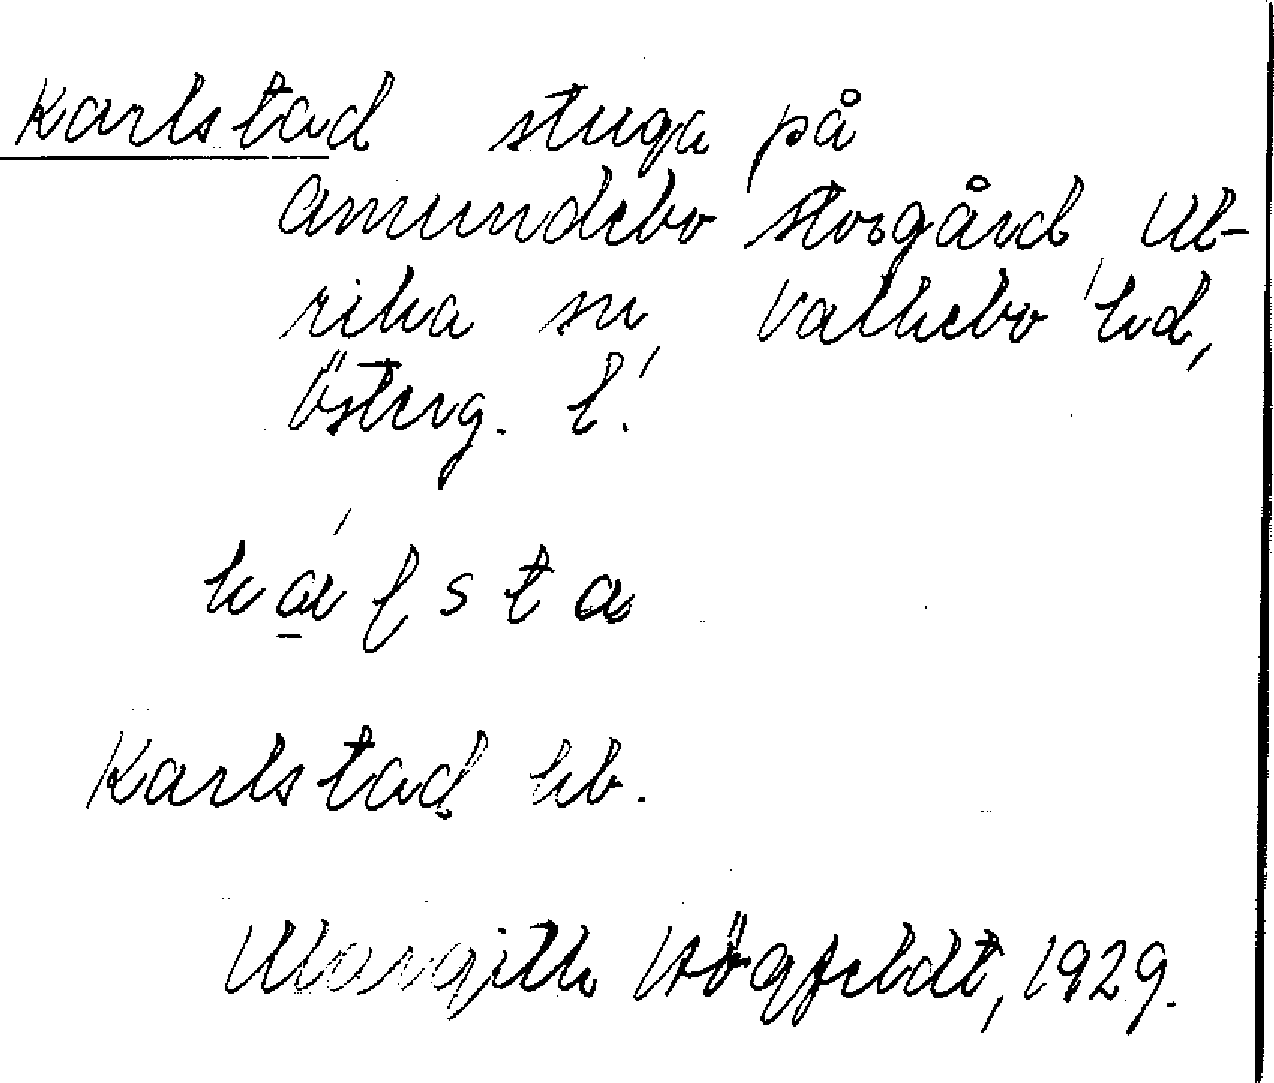 Karlstad stuga på
Amundebo storgård, Ul-
rika sn, Valkebo hd,
Österg. l.
ká̱ɭsta
Karlstad hb.
Margith Högfeldt, 1929.